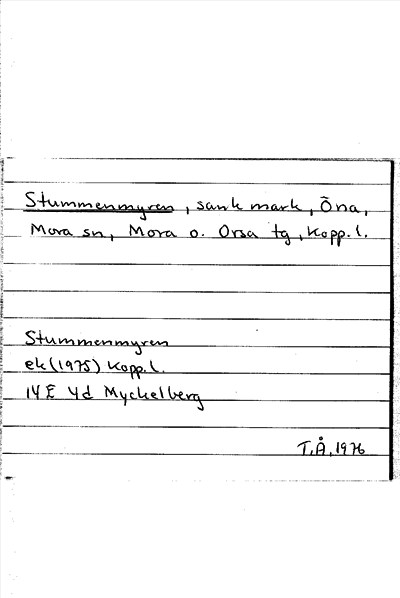 Stummenmyren, sank mark, Öna,
Mora sn, Mora o. Orsa tg, Kopp. l.
Stummenmyren
ek (1975) Kopp. l.
14 E 4d Myckelberg
T.Å, 1976